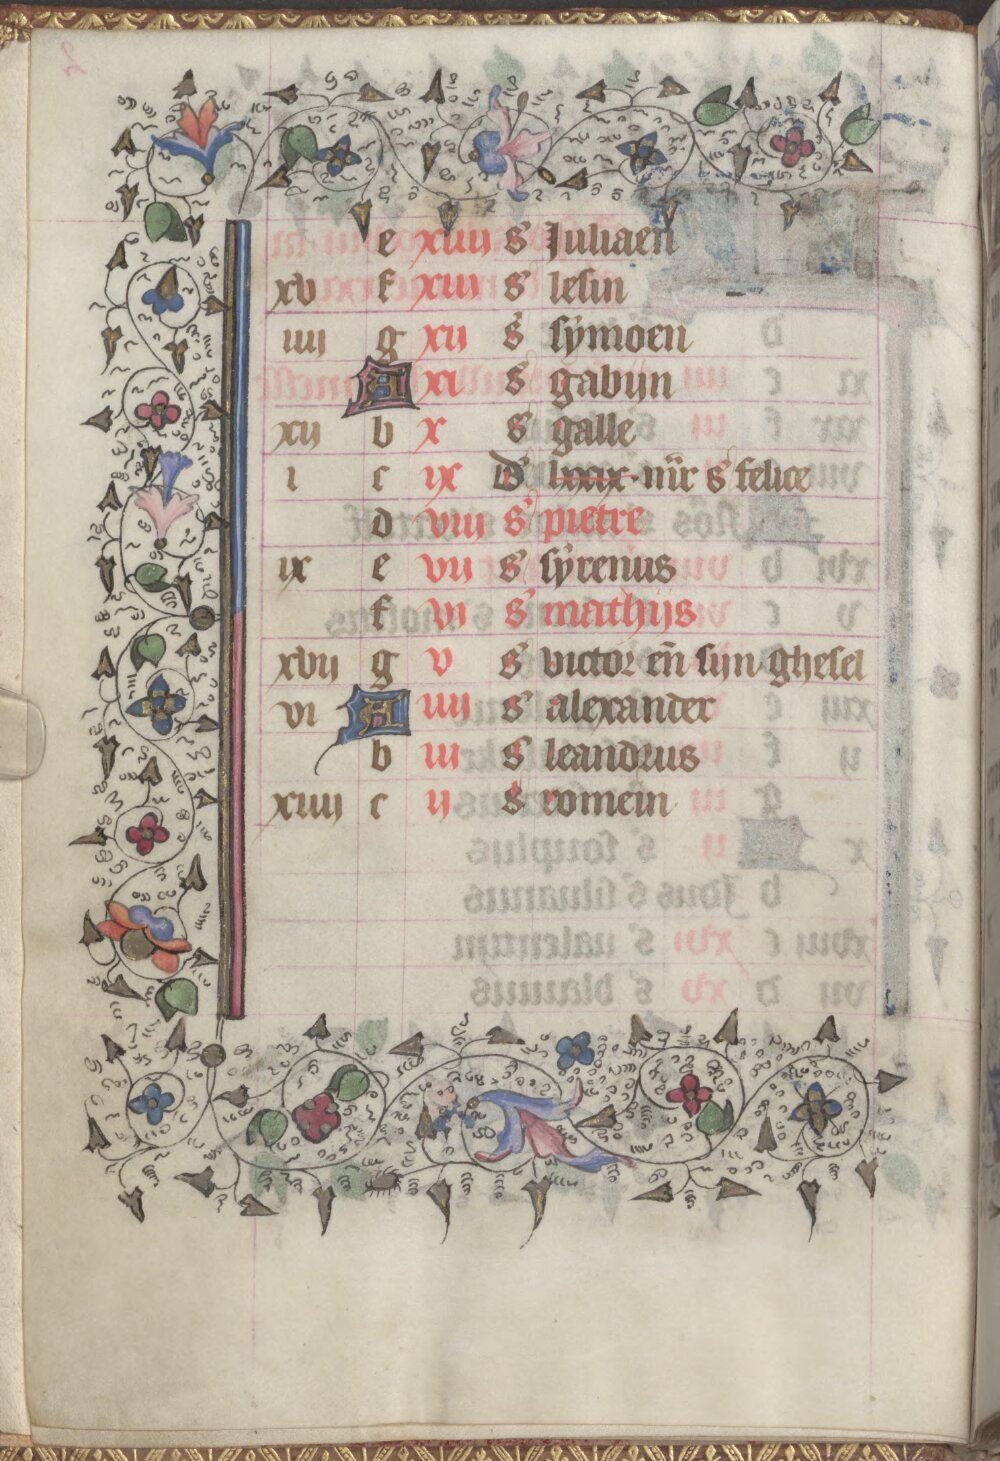 e xiiij s' Juliaen
xv f xiij s' lesin
iiij g xij s' symoen
A xi s' gabijn
xij b x s' galle
i c ix D' lxxix mr̄ s' felice
d viij s' pietre
ix e vij s' syrenus
f vi s' mathijs
xvij g v s' victor en̄ sijn ghesel
vi A iiij s' alexander
b iij s' leandrus
xiiij c ij s' romein